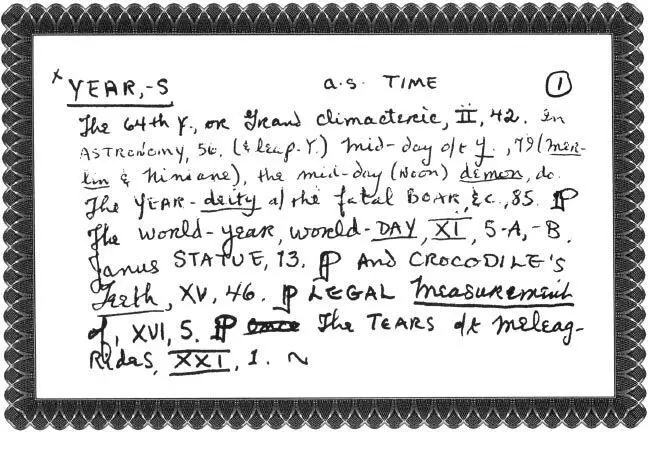 x YEAR,-S a.s. TIME 1
The 64th Y., or Grand climacteric, II, 42. In
ASTRONOMY, 56. (& leap-Y.) Mid-day o/t Y., 79 (Mer-
lin & Niniane), the mid-day (noon) demon, do.
The YEAR-deity a/ the fatal BOAR, &c., 85. P
The world-year, world-DAY, XI, 5-A,-B.
Janus STATUE, 13. P And CROCODILE'S
Teeth, XV, 46. P LEGAL Measurement
of, XVI, 5. P The TEARS o/t Meleag-
Rides, XXI, 1. ~